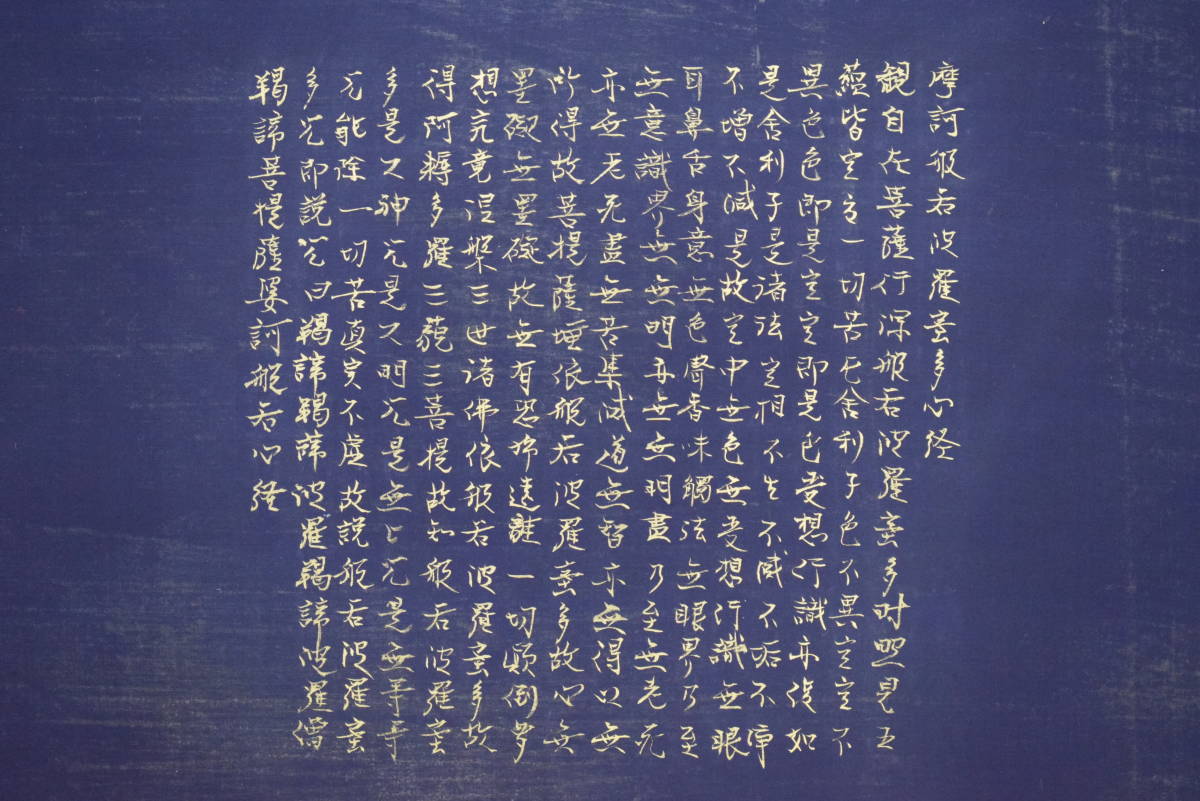 摩訶般若波羅蜜多心経
觀自在菩薩行深般若波羅蜜多时照見五
蘊皆空度一切苦厄舍利子色不異空空不
異色色即是空空即是色受想行識亦復如
是舍利子是諸法空相不生不滅不垢不淨
不增不減是故空中無色無受想行識無眼
耳鼻舌身意無色聲香味觸法無眼界乃至
無意識界無無明亦無無明盡乃至無老死
亦無老死盡無苦集滅道無智亦無得以無
所得故菩提薩埵依般若波羅蜜多故心無
罣礙無罣礙故無有恐怖遠離一切顛倒夢
想究竟涅槃三世諸佛依般若波羅蜜多故
得阿耨多羅三藐三菩提故知般若波羅蜜
多是大神咒是大明咒是無上咒是無等等
咒能除一切苦真実不虛故説般若波羅蜜
多咒即説咒曰羯諦羯諦波羅羯諦波羅僧
羯諦菩提薩婆訶般若心経